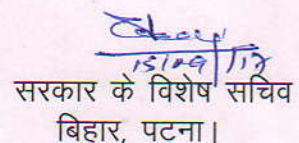 15/09/17
सरकार के विशेष सचिव
बिहार, पटना।